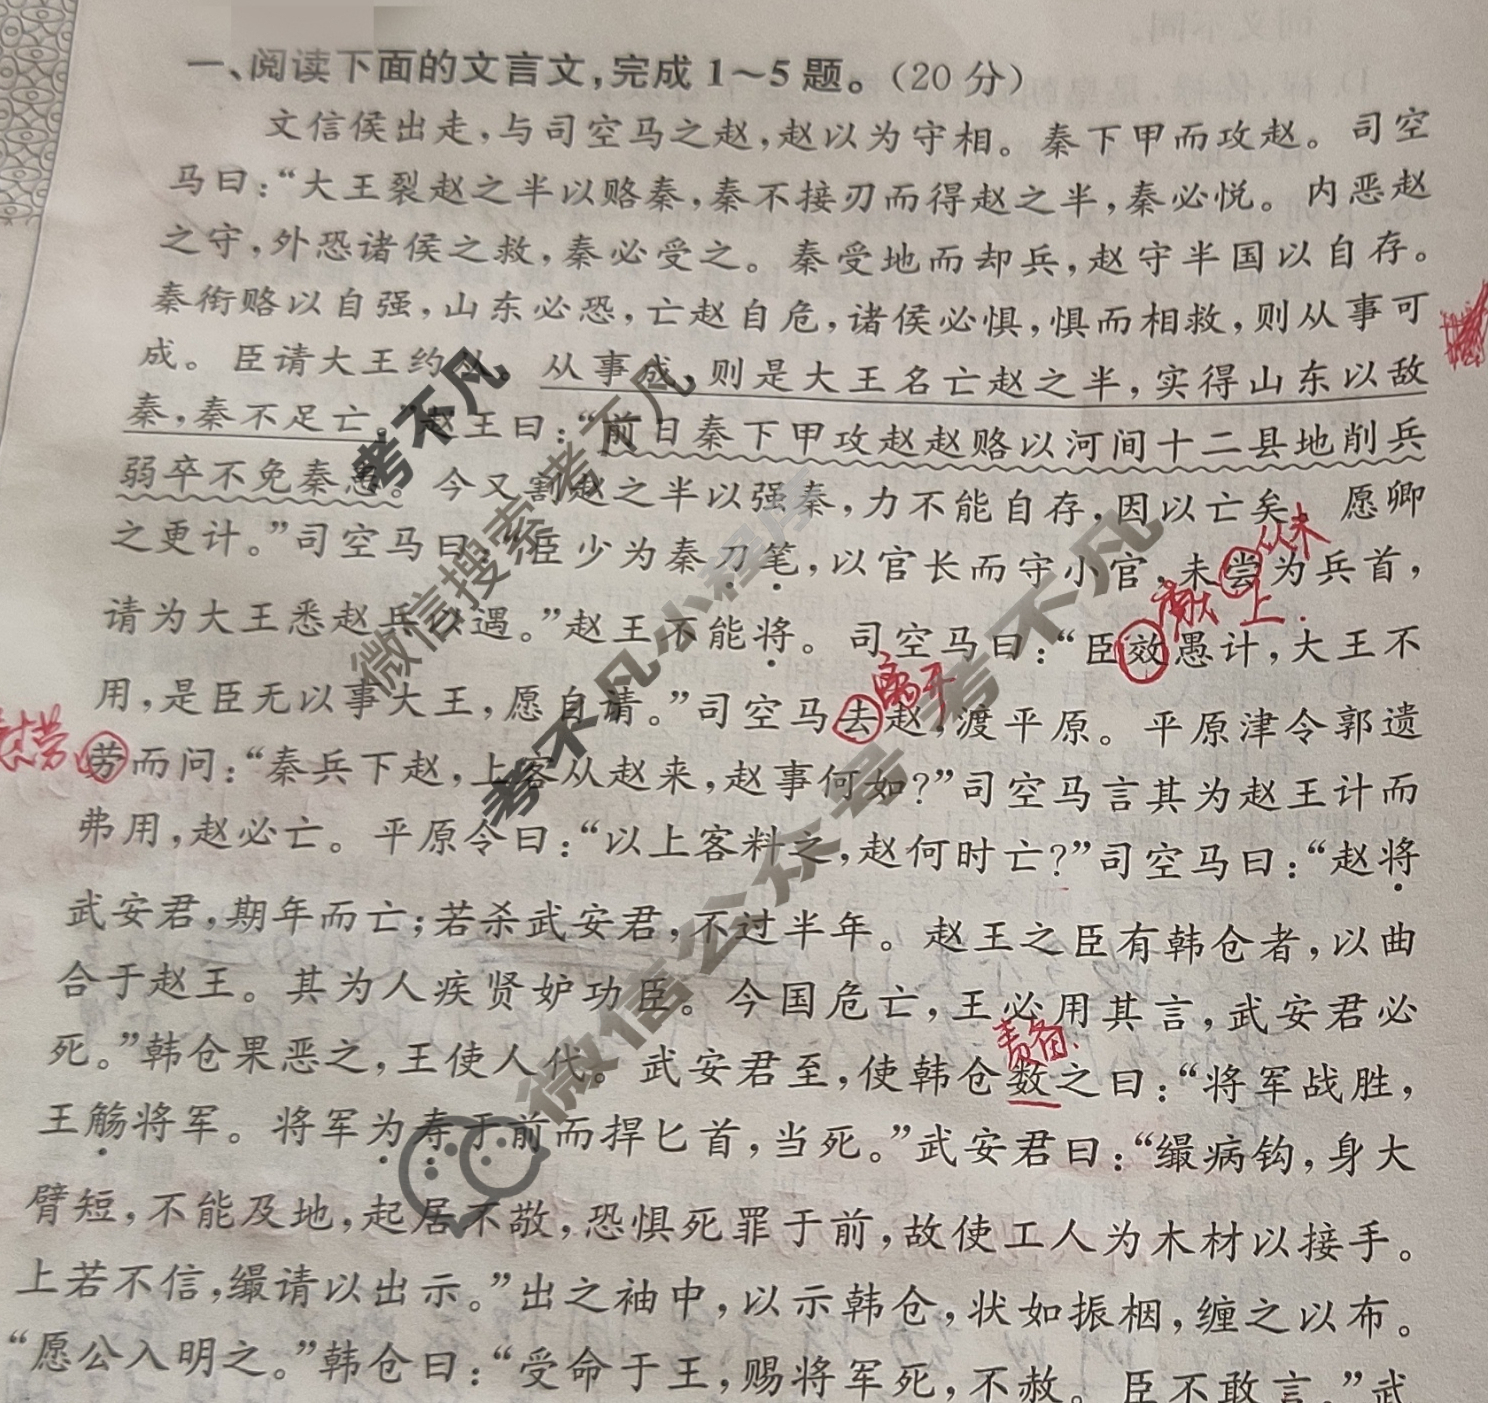 一、阅读下面的文言文,完成1～5题。(20分)
文信侯出走,与司空马之赵,赵以为守相。秦下甲而攻赵。司空
马曰:“大王裂赵之半以赂秦,秦不接刃而得赵之半,秦必悦。内恶赵
之守,外恐诸侯之救,秦必受之。秦受地而却兵,赵守半国以自存。
秦衔赂以自强,山东必恐,亡赵自危,诸侯必惧,惧而相救,则从事可
成。臣请大王约从。从事成,则是大王名亡赵之半,实得山东以敌
秦,秦不足亡。”赵王曰:“前日秦下甲攻赵赵赂以河间十二县地削兵
弱卒不免秦患。今又割赵之半以强秦,力不能自存,因以亡矣。愿卿
从未
之更计。”司空马曰:“臣少为秦刀笔,以官长而守小官,未尝为兵首,
献上
请为大王悉赵兵以遇。”赵王不能将。司空马曰:“臣效愚计,大王不
离开
用,是臣无以事大王,愿自请。”司空马去赵,渡平原。平原津令郭遗
劳而问:“秦兵下赵,上客从赵来,赵事何如?”司空马言其为赵王计而
弗用,赵必亡。平原令曰:“以上客料之,赵何时亡?”司空马曰:“赵将
武安君,期年而亡;若杀武安君,不过半年。赵王之臣有韩仓者,以曲
合于赵王。其为人疾贤妒功臣。今国危亡,王必用其言,武安君必
责备
死。”韩仓果恶之,王使人代。武安君至,使韩仓数之曰:“将军战胜,
王觞将军。将军为寿于前而捍匕首,当死。”武安君曰:“繓病钩,身大
臂短,不能及地,起居不敬,恐惧死罪于前,故使工人为木材以接手。
上若不信,繓请以出示。”出之袖中,以示韩仓,状如振栶,缠之以布。
“愿公入明之。”韩仓曰:“受命于王,赐将军死,不赦。臣不敢言。”武
考不凡
微信搜索考不凡
考不凡小程序
微信公众号 考不凡